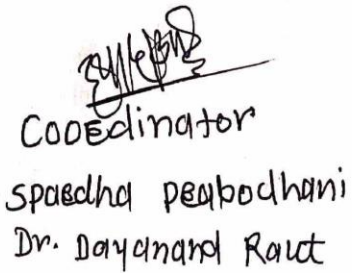 Cooedinator
spaedha peabodhani
Dr. Dayanand Raut